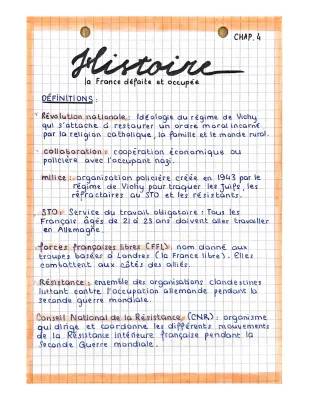 CHAP. 4
Histoire
la France défaite et occupée
DÉFINITIONS :
Révolution nationale : Idéologie du régime de Vichy
qui s'attache à restaurer un ordre moral incarné
par la religion catholique, la famille et le monde rural.
collaboration : coopération économique ou
policière avec l'occupant nazi.
milice : organisation policière créée en 1943 par le
régime de Vichy pour traquer les juifs, les
réfractaires au STO et les résistants.
STO : Service du travail obligatoire : Tous les
Français âgés de 21 à 23 ans doivent aller travailler
en Allemagne.
forces françaises libres (FFL) : nom donné aux
troupes basées à Londres (la France libre). Elles
combattent aux côtés des alliés.
Résistance : ensemble des organisations clandestines
luttant contre l'occupation allemande pendant la
seconde guerre mondiale.
Conseil National de la Résistance (CNR) : organisme
qui dirige et coordonne les différents mouvements
de la Résistance intérieure française pendant la
Seconde Guerre mondiale.